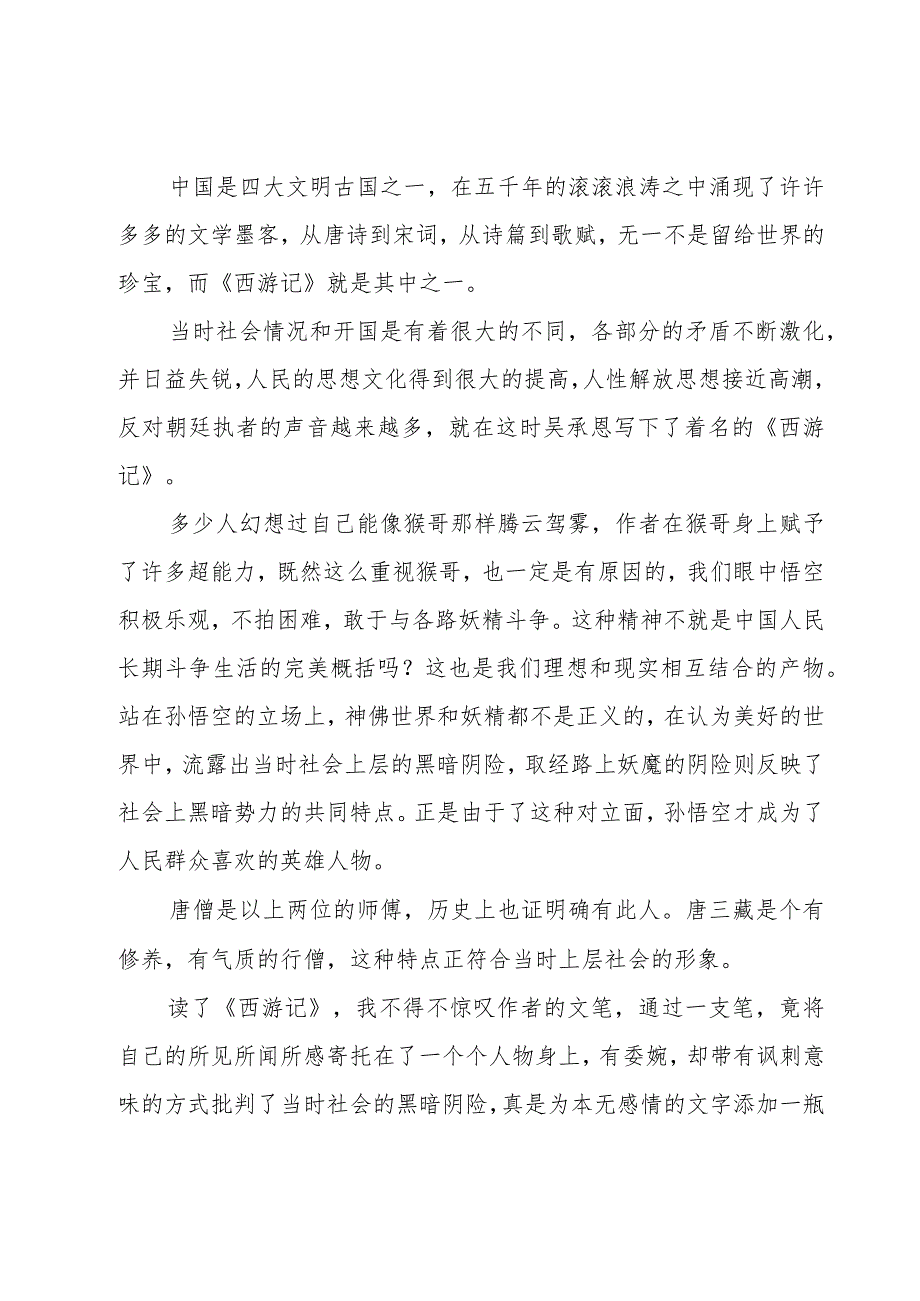 中国是四大文明古国之一，在五千年的滚滚浪涛之中涌现了许许
多多的文学墨客，从唐诗到宋词，从诗篇到歌赋，无一不是留给世界的
珍宝，而《西游记》就是其中之一。
当时社会情况和开国是有着很大的不同，各部分的矛盾不断激化，
并日益失锐，人民的思想文化得到很大的提高，人性解放思想接近高潮，
反对朝廷执者的声音越来越多，就在这时吴承恩写下了着名的《西游
记》。
多少人幻想过自己能像猴哥那样腾云驾雾，作者在猴哥身上赋予
了许多超能力，既然这么重视猴哥，也一定是有原因的，我们眼中悟空
积极乐观，不拍困难，敢于与各路妖精斗争。这种精神不就是中国人民
长期斗争生活的完美概括吗？这也是我们理想和现实相互结合的产物。
站在孙悟空的立场上，神佛世界和妖精都不是正义的，在认为美好的世
界中，流露出当时社会上层的黑暗阴险，取经路上妖魔的阴险则反映了
社会上黑暗势力的共同特点。正是由于了这种对立面，孙悟空才成为了
人民群众喜欢的英雄人物。
唐僧是以上两位的师傅，历史上也证明确有此人。唐三藏是个有
修养，有气质的行僧，这种特点正符合当时上层社会的形象。
读了《西游记》，我不得不惊叹作者的文笔，通过一支笔，竟将
自己的所见所闻所感寄托在了一个个人物身上，有委婉，却带有讽刺意
味的方式批判了当时社会的黑暗阴险，真是为本无感情的文字添加一瓶